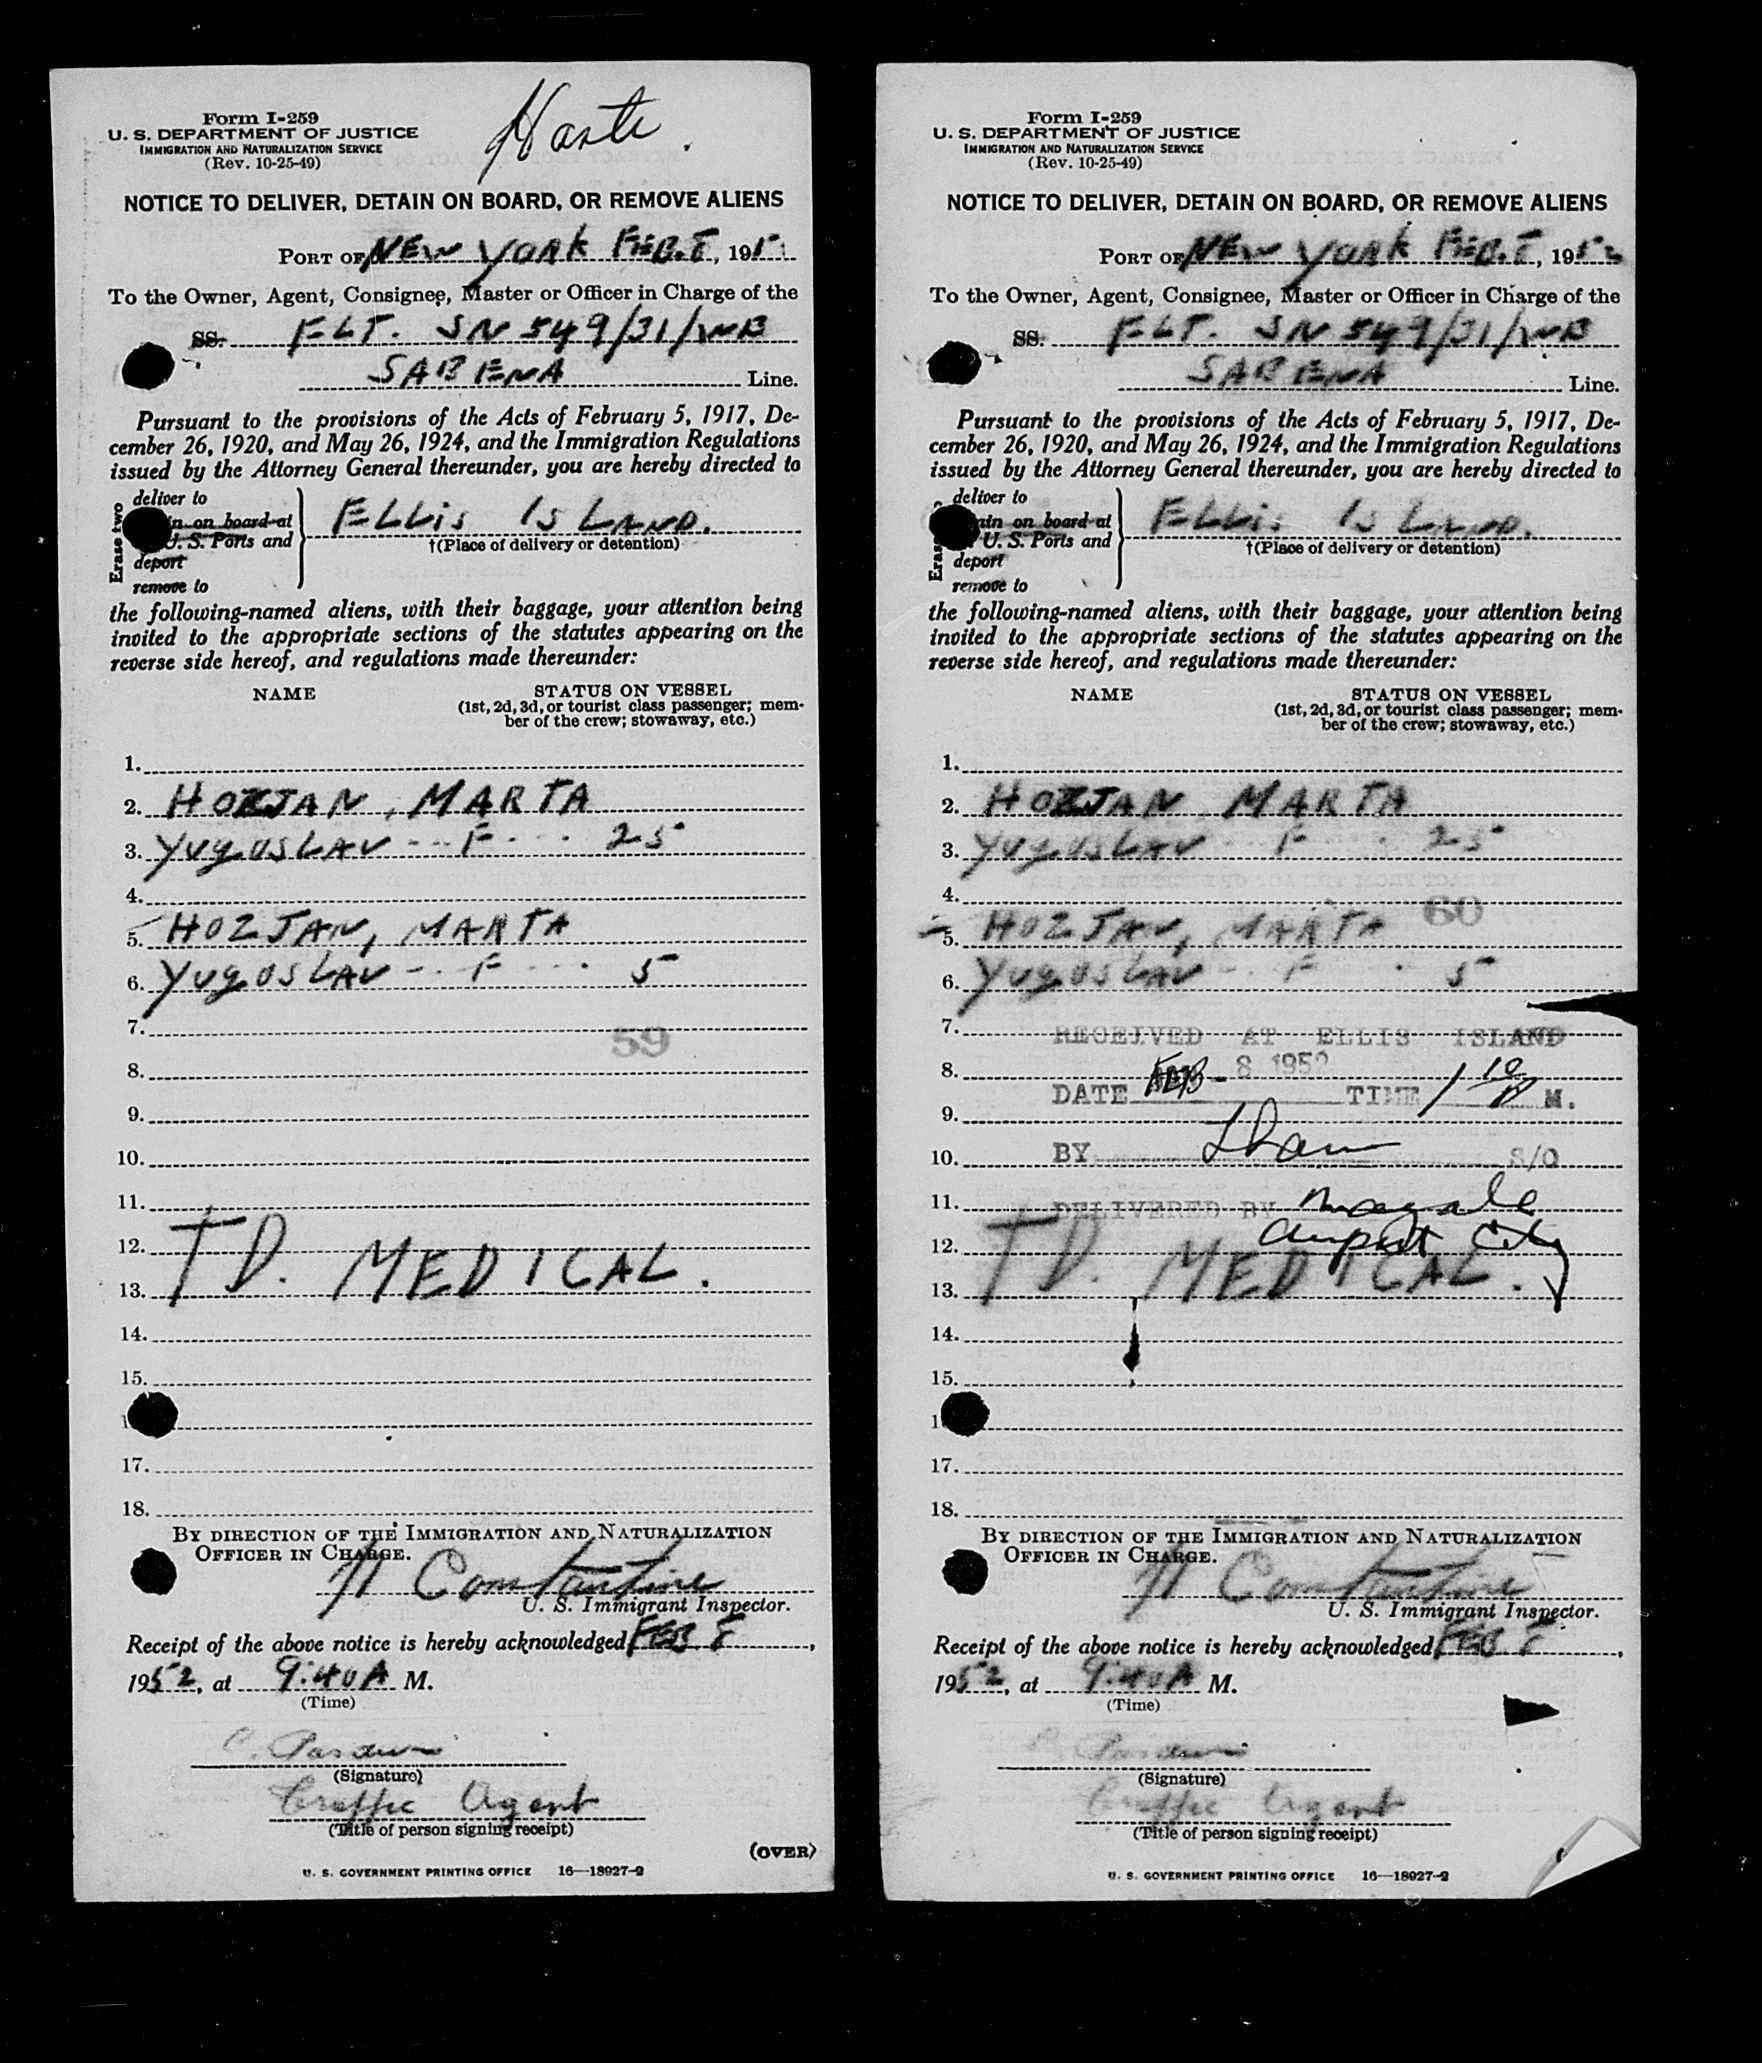 Form I-259
U. S. DEPARTMENT OF JUSTICE
IMMIGRATION AND NATURALIZATION SERVICE
(Rev. 10-25-49)
NOTICE TO DELIVER, DETAIN ON BOARD, OR REMOVE ALIENS
PORT OF NEW YORK FEB. 8, 195
To the Owner, Agent, Consignee, Master or Officer in Charge of the
SS. FLT. SN 549/31/WB
SABENA Line.
Pursuant to the provisions of the Acts of February 5, 1917, De-
cember 26, 1920, and May 26, 1924, and the Immigration Regulations
issued by the Attorney General thereunder, you are hereby directed to
Erase two
deliver to
in on board at
U. S. Ports and
deport
remove to
ELLIS ISLAND.
†(Place of delivery or detention)
the following-named aliens, with their baggage, your attention being
invited to the appropriate sections of the statutes appearing on the
reverse side hereof, and regulations made thereunder:
NAME
STATUS ON VESSEL
(1st, 2d, 3d, or tourist class passenger; mem-
ber of the crew; stowaway, etc.)
1.
2. HOZJAN, MARTA
3. YUGOSLAV -- F -- 25
4.
5. HOZJAN, MARTA
6. YUGOSLAV -- F --- 5
7.
59
8.
9.
10.
11.
12. TD. MEDICAL.
13.
14.
15.
1
17.
18.
BY DIRECTION OF THE IMMIGRATION AND NATURALIZATION
OFFICER IN CHARGE.
Constantine
U. S. Immigrant Inspector.
Receipt of the above notice is hereby acknowledged FEB 8,
1952, at 9:40 A M.
(Time)
(Signature)
Traffic Agent
(Title of person signing receipt)
(OVER)
U. S. GOVERNMENT PRINTING OFFICE 16—18927-2
Form I-259
U. S. DEPARTMENT OF JUSTICE
IMMIGRATION AND NATURALIZATION SERVICE
(Rev. 10-25-49)
NOTICE TO DELIVER, DETAIN ON BOARD, OR REMOVE ALIENS
PORT OF NEW YORK FEB. 8, 1952
To the Owner, Agent, Consignee, Master or Officer in Charge of the
SS. FLT. SN 549/31/WB
SABENA Line.
Pursuant to the provisions of the Acts of February 5, 1917, De-
cember 26, 1920, and May 26, 1924, and the Immigration Regulations
issued by the Attorney General thereunder, you are hereby directed to
deliver to
ain on board at
U. S. Ports and
deport
remove to
ELLIS ISLAND.
†(Place of delivery or detention)
the following-named aliens, with their baggage, your attention being
invited to the appropriate sections of the statutes appearing on the
reverse side hereof, and regulations made thereunder:
NAME
STATUS ON VESSEL
(1st, 2d, 3d, or tourist class passenger; mem-
ber of the crew; stowaway, etc.)
1.
2. HOZJAN MARTA
3. YUGOSLAV F 25
4.
60
5. HOZJAN, MARTA
6. YUGOSLAV -- F 5
7. RECEIVED AT ELLIS ISLAND
8. DATE FEB - 8 1952 TIME 1 10 P M.
9.
10. BY S/O
11. DELIVERED BY
12. TD. MEDICAL.
13.
14.
15.
1
17.
18.
BY DIRECTION OF THE IMMIGRATION AND NATURALIZATION
OFFICER IN CHARGE.
Constantine
U. S. Immigrant Inspector.
Receipt of the above notice is hereby acknowledged FEB 8,
1952, at 9:40 A M.
(Time)
(Signature)
Traffic Agent
(Title of person signing receipt)
U. S. GOVERNMENT PRINTING OFFICE 16—18927-2